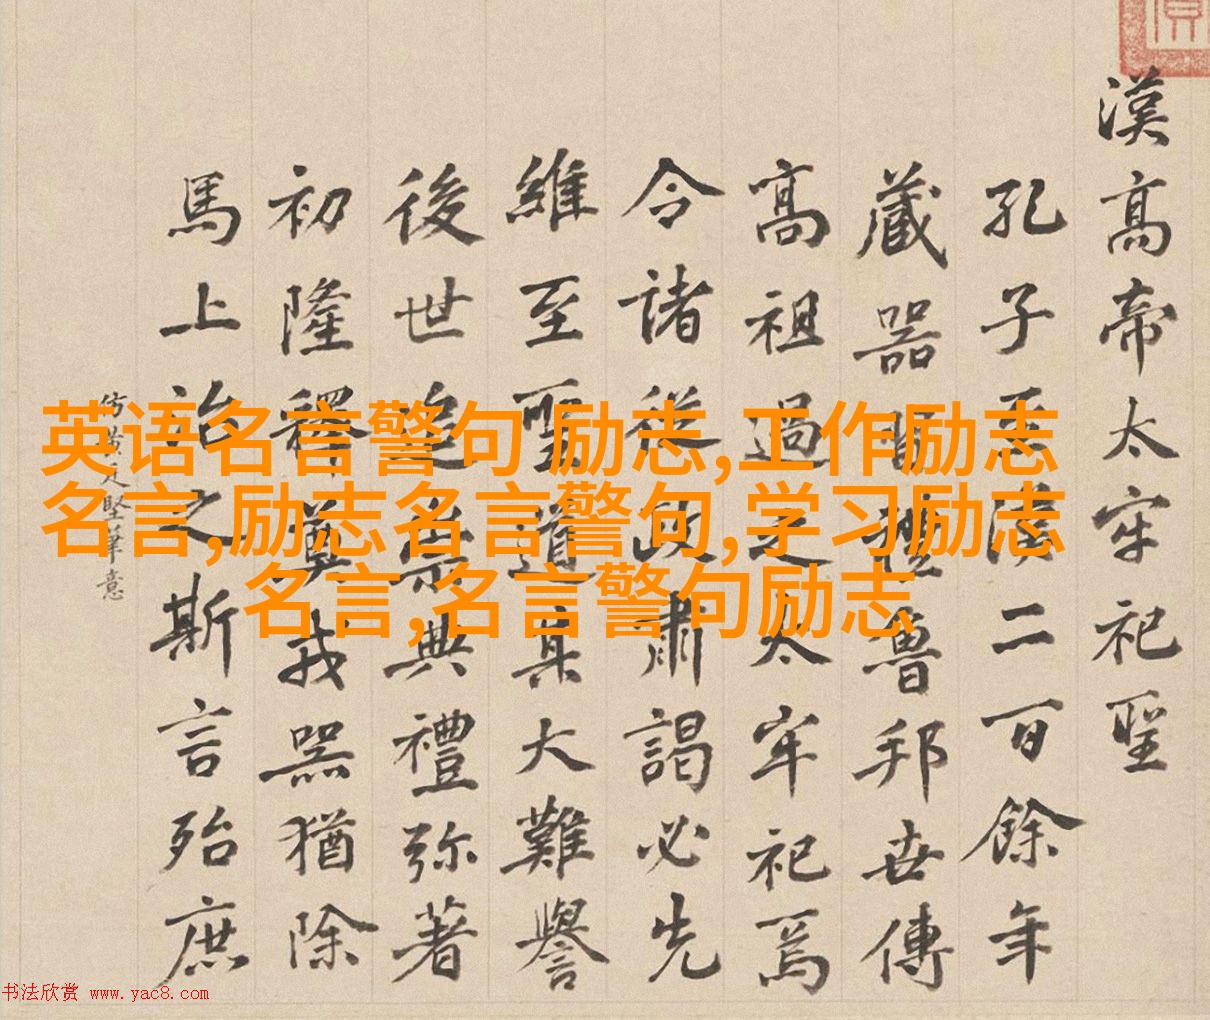 漢高帝太牢祀聖
孔子至漢二百餘年
藏器禮魯邦世傳
高祖過之太牢祀焉
令諸從政肅謁必先
維至聖道大難譽
後世追崇典禮弥著
初隆釋奠戎器猶除
馬上治之斯言殆庶
仿黃庭堅筆意
英语名言警句 励志,工作励志
名言,励志名言警句,学习励志
名言,名言警句励志
书法欣赏 www.yac8.com